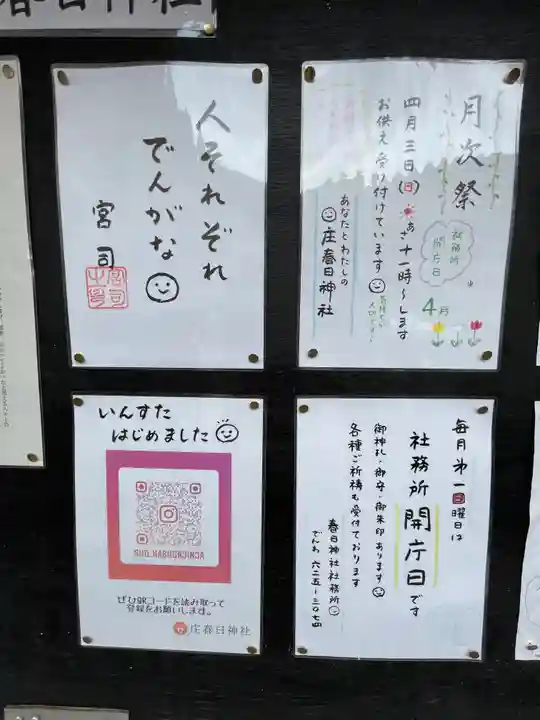 春日神社
人それぞれ
でんがな
宮司
月次祭
四月三日(日)あさ十一時〜します
お供え受け付けています
あなたとわたしの
庄春日神社
社務所
開庁日
4月
いんすた
はじめました
SHO.KASUGAJINJYA
ぜひQRコードを読み取って
登録をお願いします。
庄春日神社
毎月第一日曜日は
社務所開庁日です
御神札・御守・御朱印あります
各種ご祈祷も受付ております
春日神社社務所
でんわ 六二五-三〇七四